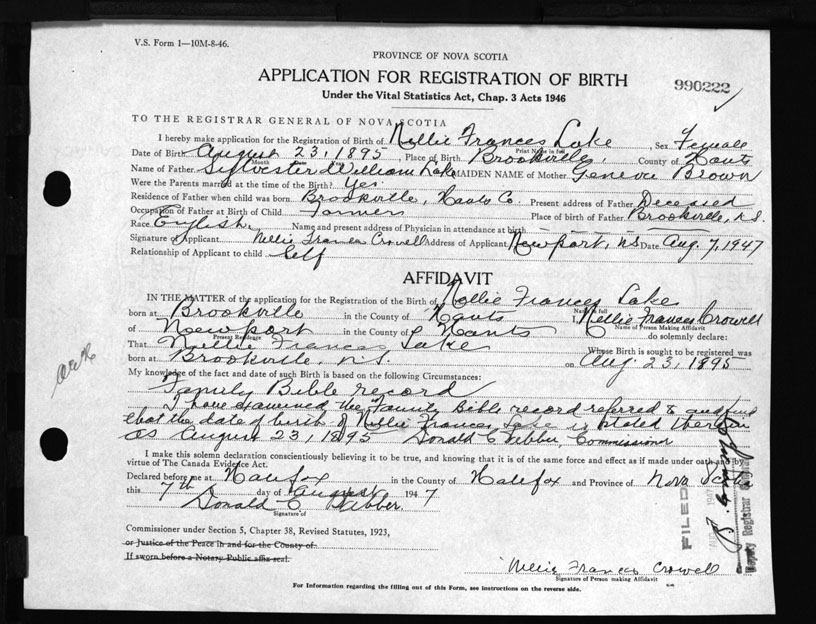 V.S. Form 1—10M-8-46.
PROVINCE OF NOVA SCOTIA
APPLICATION FOR REGISTRATION OF BIRTH
990222
Under the Vital Statistics Act, Chap. 3 Acts 1946
TO THE REGISTRAR GENERAL OF NOVA SCOTIA
I hereby make application for the Registration of Birth of Nellie Frances Lake, Sex Female
Print Name in full
Date of Birth August 23, 1895, Place of Birth Brookville, County of Hants
Month Date Year
Name of Father Sylvester William Lake MAIDEN NAME of Mother Geneva Brown
Were the Parents married at the time of the Birth? Yes.
Residence of Father when child was born Brookville, Hants Co. Present address of Father Deceased
Occupation of Father at Birth of Child Farmer Place of birth of Father Brookville, N.S.
Race English Name and present address of Physician in attendance at birth
Signature of Applicant Nellie Frances Crowell Address of Applicant Newport, NS Date Aug. 7, 1947
Relationship of Applicant to child Self
AFFIDAVIT
IN THE MATTER of the application for the Registration of the Birth of Nellie Frances Lake
Name in full
born at Brookville in the County of Hants I, Nellie Frances Crowell
Name of Person Making Affidavit
of Newport in the County of Hants do solemnly declare:
Present Residence
That Nellie Frances Lake Whose Birth is sought to be registered was
born at Brookville, N.S. on Aug. 23, 1895
My knowledge of the fact and date of such Birth is based on the following Circumstances:
Family Bible record
I have examined the Family Bible record referred to and find
that the date of birth of Nellie Frances Lake is stated therein
as August 23, 1895 Donald C Commissioner
I make this solemn declaration conscientiously believing it to be true, and knowing that it is of the same force and effect as if made under oath and by
virtue of The Canada Evidence Act.
Declared before me at Halifax in the County of Halifax and Province of Nova Scotia
this 7th day of August 1947
Donald C
Signature of
FILED
Deputy Registrar General
Commissioner under Section 5, Chapter 38, Revised Statutes, 1923,
or Justice of the Peace in and for the County of
If sworn before a Notary Public affix seal.
Nellie Frances Crowell
Signature of Person making Affidavit
For Information regarding the filling out of this Form, see instructions on the reverse side.